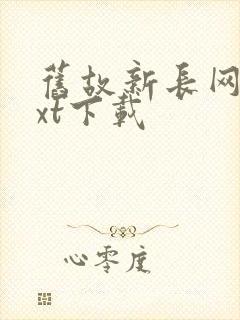 舊故新長网
xt下載
心零度